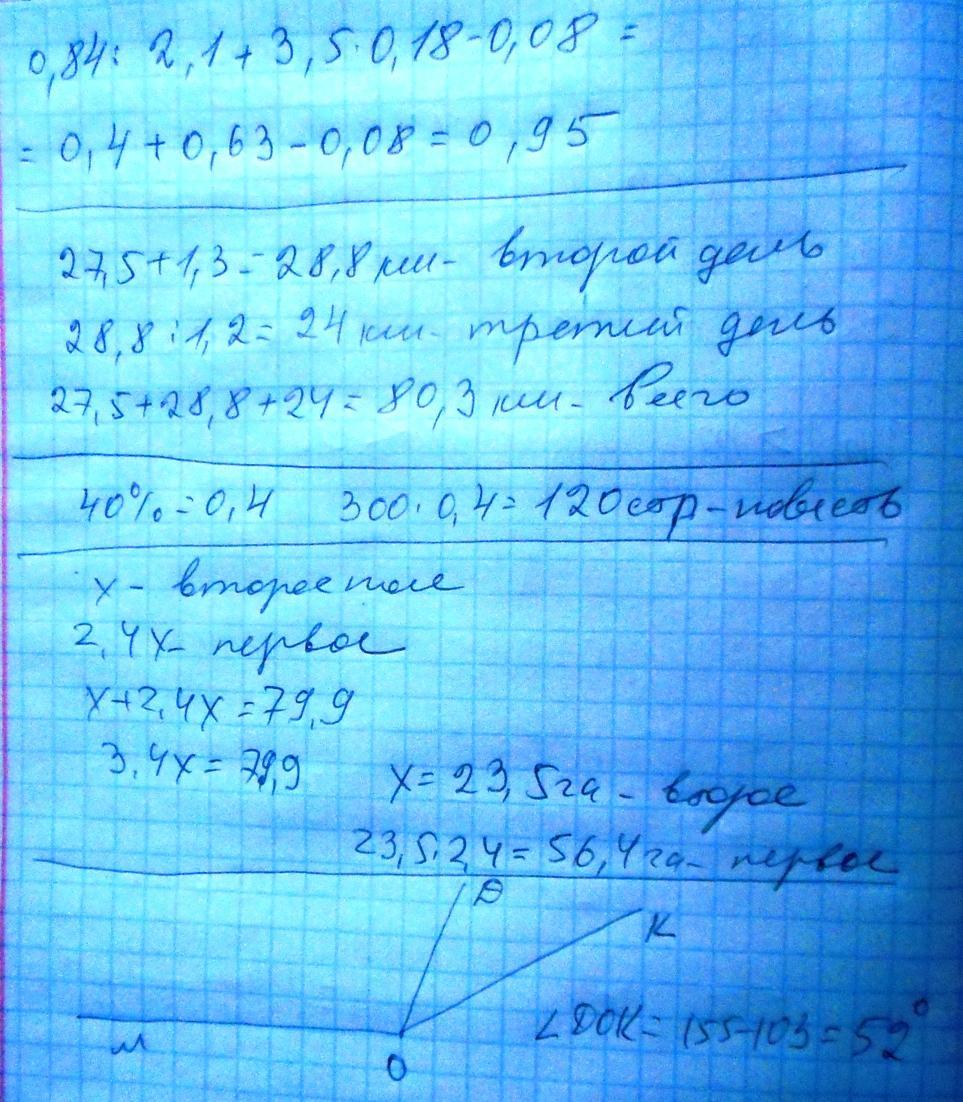 0,84 : 2,1 + 3,5 · 0,18 - 0,08 =
= 0,4 + 0,63 - 0,08 = 0,95
27,5 + 1,3 = 28,8 км - второй день
28,8 : 1,2 = 24 км - третий день
27,5 + 28,8 + 24 = 80,3 км - всего
40% = 0,4 300 · 0,4 = 120 стр - повесть
x - второе поле
2,4x - первое
x + 2,4x = 79,9
3,4x = 79,9 x = 23,5 га - второе
23,5 · 2,4 = 56,4 га - первое
D
K
M
∠DOK = 155 - 103 = 52°
O